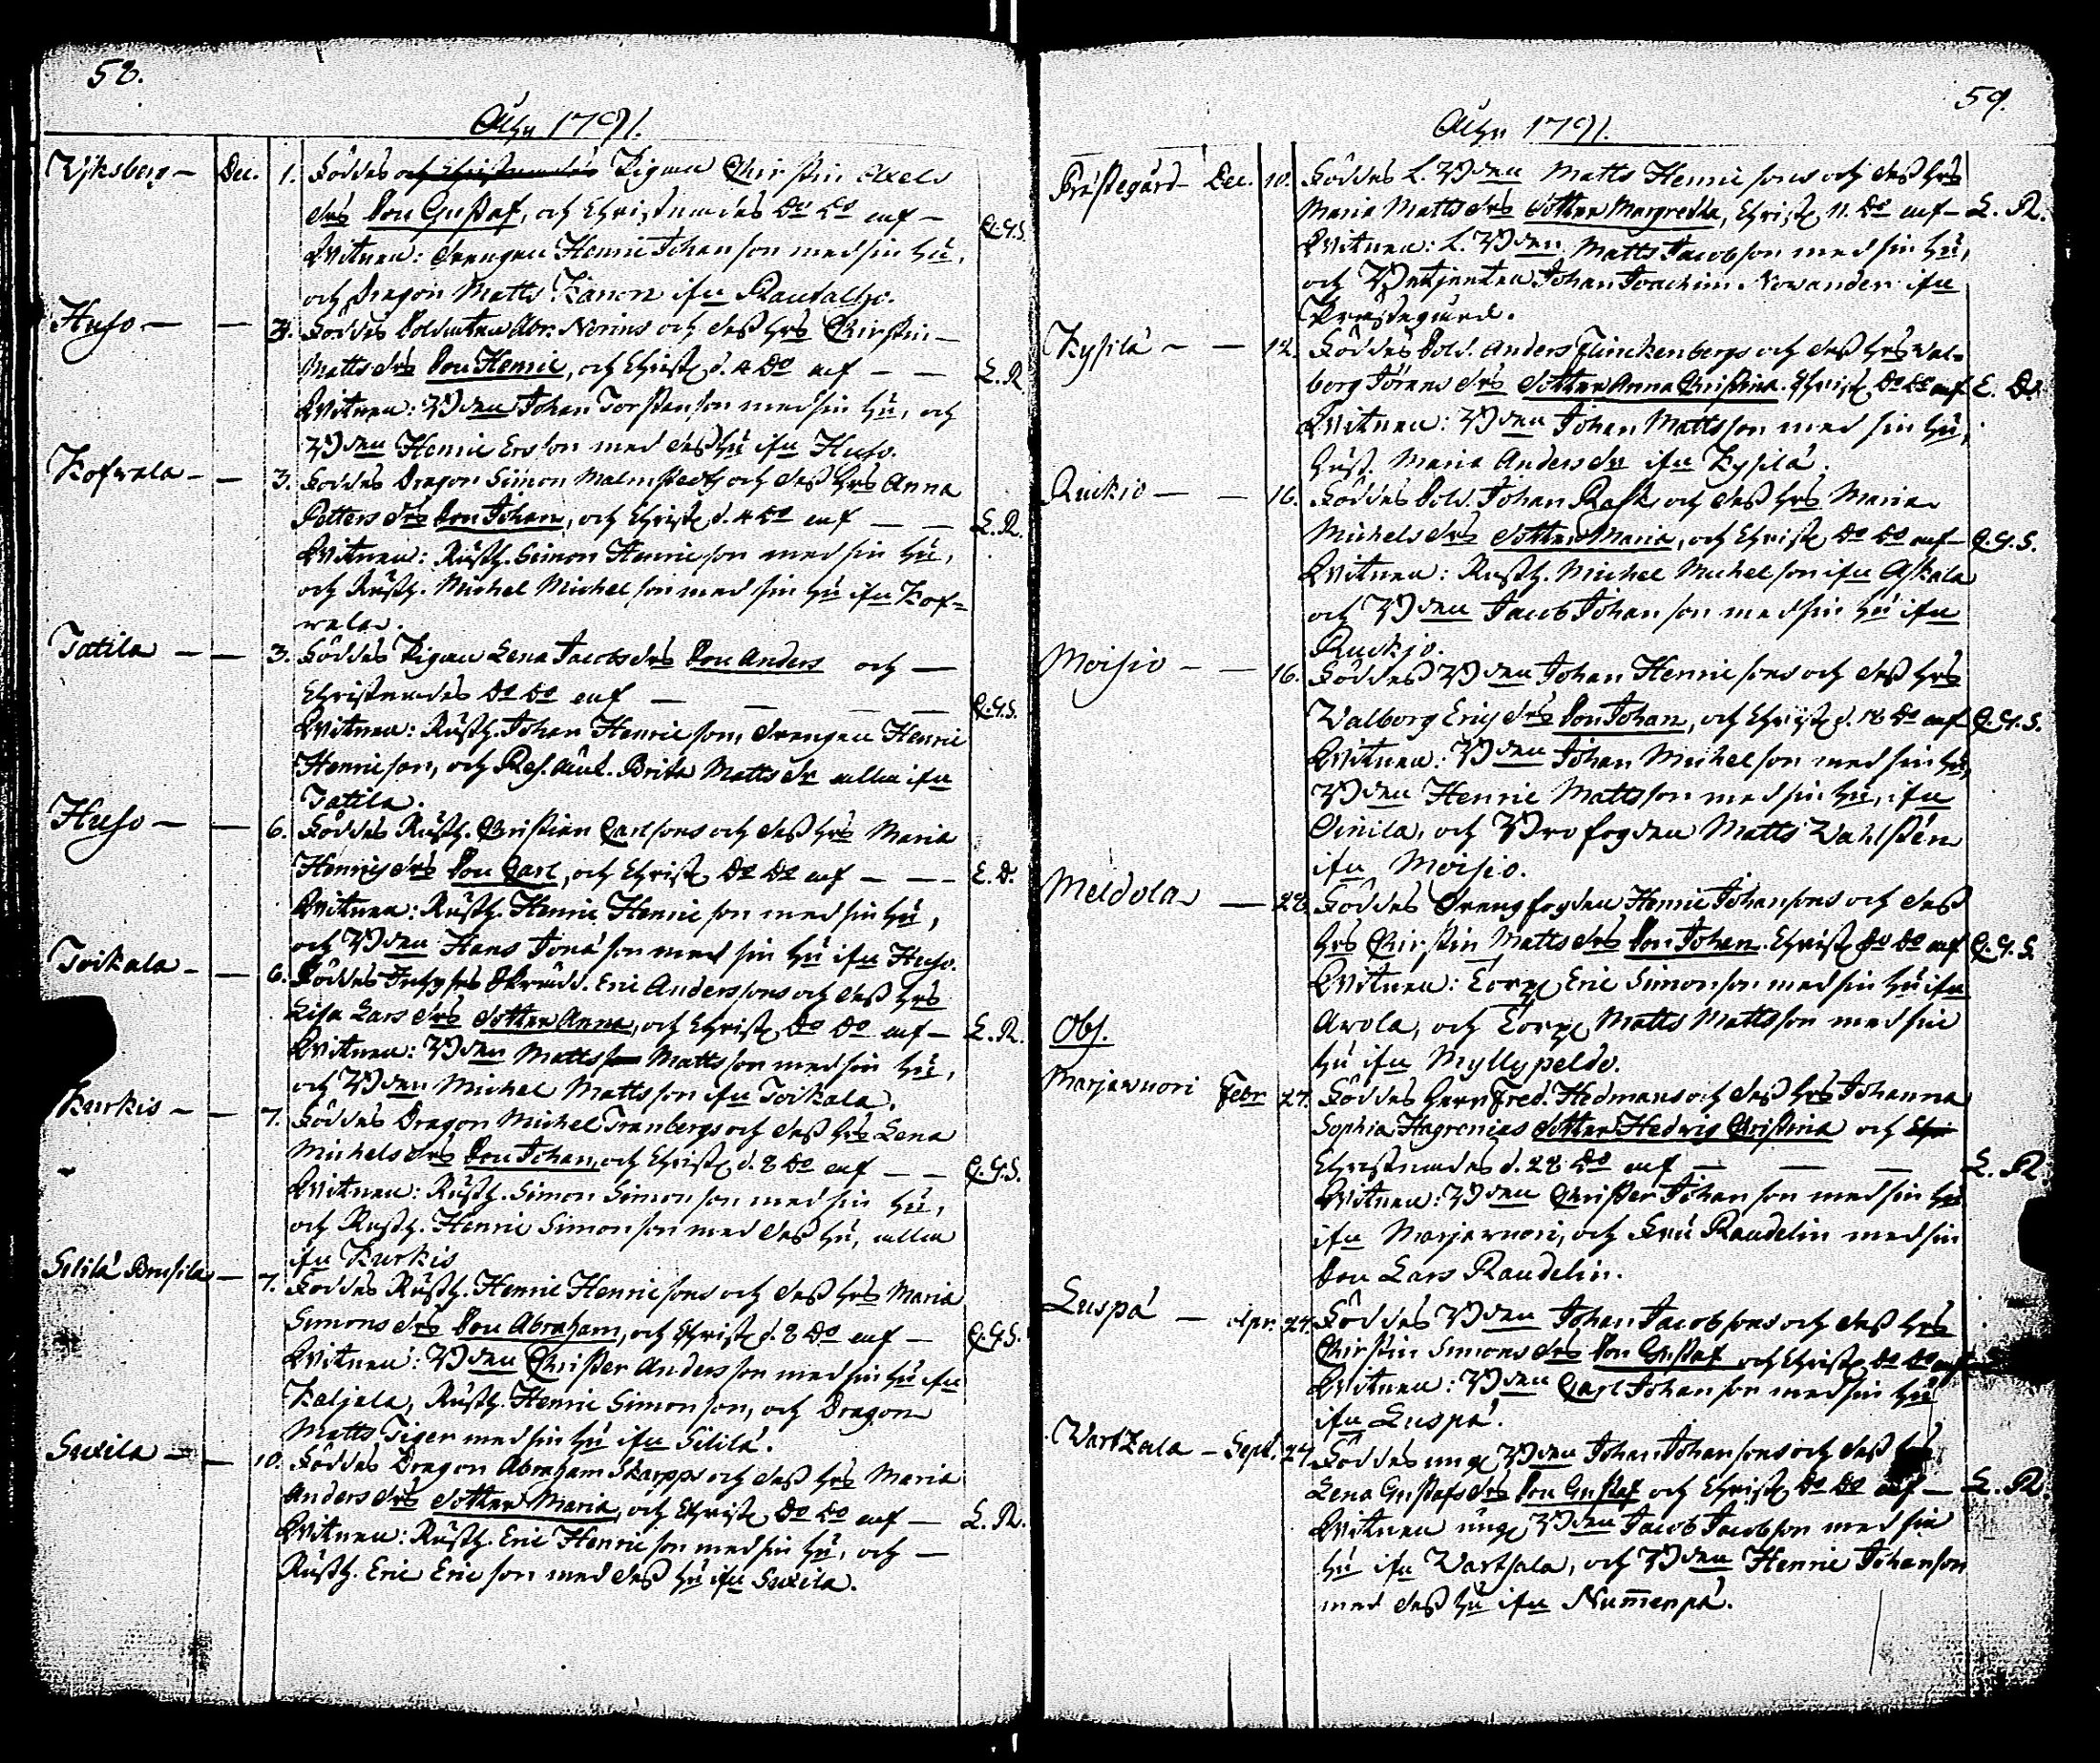 58.
Åhr 1791.
Wiksberg — Dec. 1. Föddes och Christnades Pigan Chirstin Axels
drs Son Gustaf, och Christnades Do Do auf — C.G.S.
Witnen: Drengen Henric Johansson med sin Hu,
och Dragon Matts Kanon ifn Raudalho.
Huso — — 3. Föddes Soldaten Abr. Norins och dess Hrs Chirstin
Matts drs Son Henric, och Christ d. 4 Do auf — — L. R.
Witnen: Bden Johan Torstensson med sin Hu, och
Bden Henric Ersson med dess Hu ifn Huso.
Kofwala — — 3. Föddes Dragon Simon Malmstedts och dess Hrs Anna
Petters drs Son Johan, och Christ d. 4 Do auf — — L. R.
Witnen: Rusth. Simon Henricsson med sin Hu,
och Rusth. Michel Michelsson med sin Hu ifn Kof=
wala.
Tatila — — 3. Föddes Pigan Lena Jacobsdrs Son Anders och —
Christnades Do Do auf — — — — C.G.S.
Witnen: Rusth. Johan Henricsson, Drengen Henric
Henricsson, och Brita Matts dr alla ifn
Tatila.
Huso — — 6. Föddes Rusth. Christian Carlsons och dess Hrs Maria
Henrichs drs Son Carl, och Christ Do Do auf — — — E. D.
Witnen: Rusth. Henric Henricsson med sin Hu,
och Bden Hans Jonasson med sin Hu ifn Huso.
Toikala — — 6. Föddes Skrädd. Eric Anderssons och dess Hrs
Lisa Lars drs dotter Anna, och Christ Do Do auf — L. R.
Witnen: Bden Matts Mattsson med sin Hu,
och Bden Michel Mattsson ifn Toikala.
Kurkis — — 7. Föddes Dragon Michel Tranbergs och dess Hrs Lena
Michels drs Son Johan, och Christ d. 8 Do auf — — C.G.S.
Witnen: Rusth. Simon Simonsson med sin Hu,
och Rusth. Henric Simonsson med dess Hu, alla
ifn Kurkis
Sililä Brusila — 7. Föddes Rusth. Henric Henricsons och dess Hrs Maria
Simons drs Son Abraham, och Christ d. 8 Do auf — C.G.S.
Witnen: Bden Christer Andersson med sin Hu ifn
Kaljala, Rusth. Henric Simonsson, och Dragon
Matts Tiger med sin Hu ifn Sililä.
Suxila — — 10. Föddes Dragon Abraham Skarpps och dess Hrs Maria
Anders drs dotter Maria, och Christ Do Do auf — L. R.
Witnen: Rusth. Eric Henricsson med sin Hu, och —
Rusth. Eric Ericsson med dess Hu ifn Suxila.
59.
Åhr 1791.
Prästegård — Dec. 10. Föddes L. Bden Matts Henricsons och dess Hrs
Maria Matts drs dotter Margretha, Christ 11. Do auf — L. R.
Witnen: L. Bden Matts Jacobsson med sin Hu,
och Johan Joachim Nowander ifn
Prestegård.
Kysilä — — 12. Föddes Sold. Anders Flinckenbergs och dess Hrs Wal=
borg Jörans drs dotter Anna Christina. Christ Do Do auf E. D.
Witnen: Bden Johan Mattsson med sin Hu,
Hust. Maria Anders dr ifn Kysilä.
Ruckio — — 16. Föddes Sold. Johan Rask och dess Hrs Maria
Michels drs dotter Maria, och Christ Do Do auf — C.G.S.
Witnen: Rusth. Michel Michelsson ifn Askala
och Bden Jacob Johansson med sin Hu ifn
Ruckjo.
Moisio — — 16. Föddes Bden Johan Henricsons och dess Hrs
Walborg Erics drs Son Johan, och Christ d. 18 Do auf C.G.S.
Witnen: Bden Johan Michelsson med sin Hu,
Bden Henric Mattsson med sin Hu, ifn
Oinila, och Matts Wahlstén
ifn Moisio.
Meldola — 28. Föddes Drengfogden Henric Johansons och dess
Hrs Chirstin Matts drs Son Johan. Christ Do Do auf C.G.S.
Witnen: Torp. Eric Simonsson med sin Hu ifn
Arola, och Torp. Matts Mattsson med sin
Hu ifn Myllypeldo.
Obs.
Marjawuori Febr. 27. Föddes Herr Fred. Hedmans och dess Hrs Johanna
Sophia Hagronias dotter Hedwig Christina och Chri
Christnades d. 28 Do auf — — — L. R.
Witnen: Bden Christer Johansson med sin Hu
ifn Marjawuori, och Fru Raudelin med sin
Son Lars Raudelin.
Luspä — Apr. 24. Föddes Bden Johan Jacobsons och dess Hrs
Chirstin Simons drs Son Gustaf och Christ Do Do auf
Witnen: Bden Carl Johansson med sin Hu
ifn Luspä.
Wartzala — Sept. 24. Föddes ung Bden Johan Johansons och dess Hrs
Lena Gustafs drs Son Gustaf och Christ Do Do auf — L. R.
Witnen ung Bden Jacob Jacobsson med sin
Hu ifn Wartsala, och Bden Henric Johansson
med dess Hu ifn Numenpä.